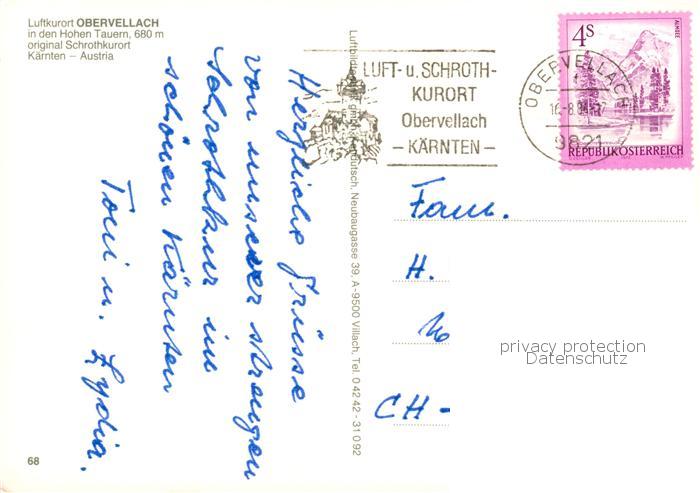 Luftkurort OBERVELLACH
in den Hohen Tauern, 680 m
original Schrothkurort
Kärnten – Austria
Herzliche Grüsse
von unserer strengen
Schrothkur im
schönen Kärnten
Toni u. Lydia.
68
Neubaugasse 39, A-9500 Villach, Tel. 0 42 42 - 31 0 92
LUFT- u. SCHROTH-
KURORT
Obervellach
– KÄRNTEN –
OBERVELLACH
9821
4S
ALMSEE
REPUBLIK ÖSTERREICH
Fam.
H.
CH -
privacy protection
Datenschutz